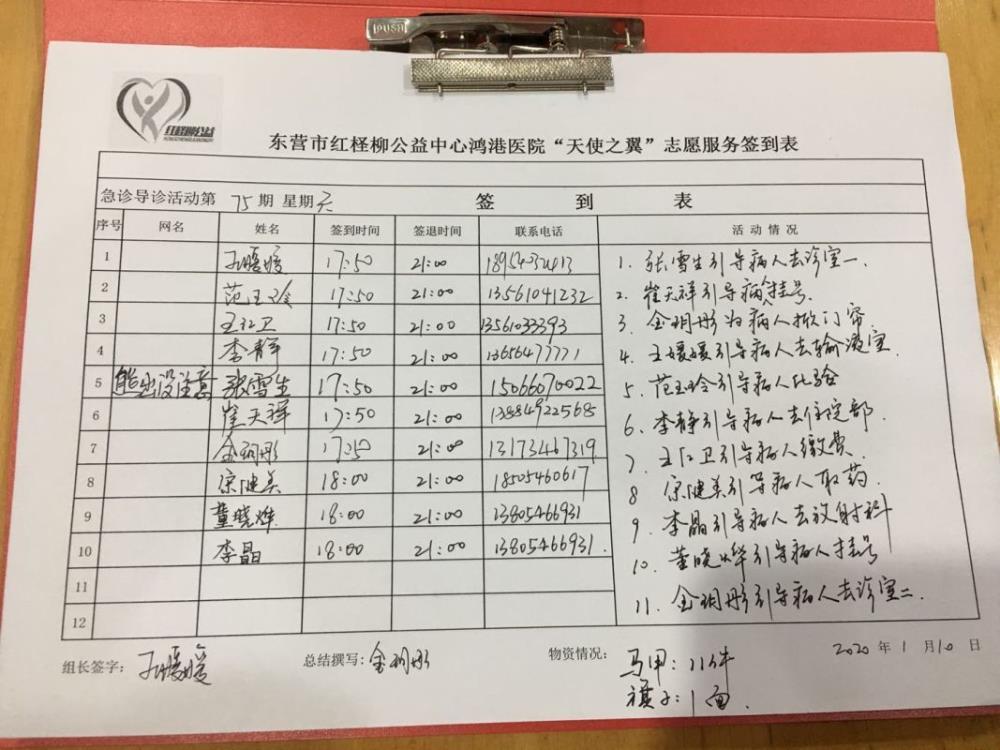 PUSH
红柽柳公益
东营市红柽柳公益中心鸿港医院“天使之翼”志愿服务签到表
急诊导诊活动第 75 期 星期天 签 到 表
序号 网名 姓名 签到时间 签退时间 联系电话 活动情况
1 孔媛媛 17:50 21:00
2 范玉玲 17:50 21:00 13561041232
3 王红卫 17:50 21:00 13561033393
4 李静 17:50 21:00 13656477771
5 能出没注意 张雪生 17:50 21:00 15066070022
6 崔天祥 17:50 21:00 13884922568
7 金玥彤 17:50 21:00 13173467319
8 宗健美 18:00 21:00 18505460617
9 董晓烨 18:00 21:00 13805466931
10 李晶 18:00 21:00 13805466931.
11
12
1. 张雪生引导病人去诊室一.
2. 崔天祥引导病人挂号.
3. 金玥彤为病人掀门帘.
4. 王媛媛引导病人去输液室.
5. 范玉玲引导病人化验
6. 李静引导病人去住院部.
7. 王红卫引导病人缴费.
8 宗健美引导病人取药.
9. 李晶引导病人去放射科
10. 董晓烨引导病人挂号
11. 金玥彤引导病人去诊室二.
组长签字: 孔媛媛 总结撰写: 金玥彤 物资情况: 马甲: 11件
旗子: 1面.
2020 年 1 月 10 日